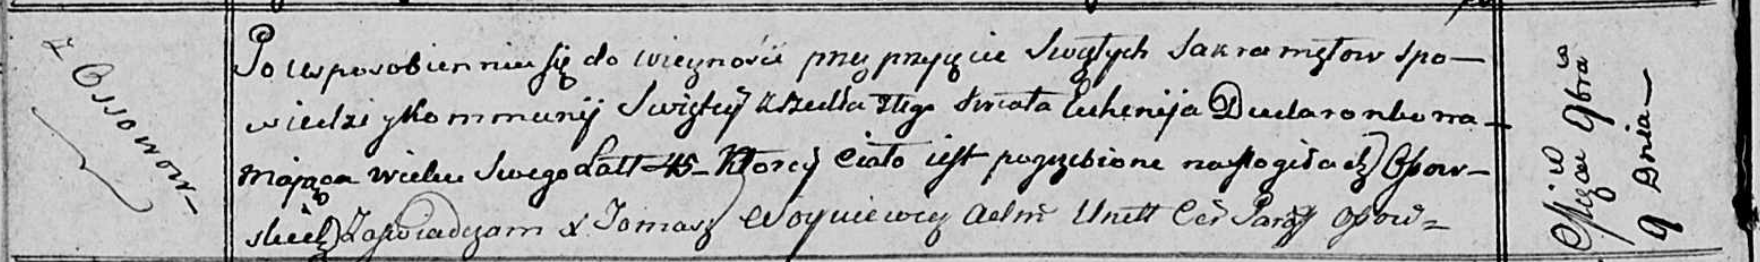 z Ossowow-
Po usposobienniu się do wiecznośći przez przyjęcie Swiętych Sakramętow spo-
wiedzi y kommunij Swiętey zszedła z tego swiata Euhenija Dudaronkowa
mająca wieku Swego Latt 45 Ktorey Ciało iest pogrzebione na Mogiłach Ossow-
skich Zaświadczam X Tomasz Woyniewicz Adm Unitt Cer Paroch Ossow=
Miesiąc 9bra
9 Dnia